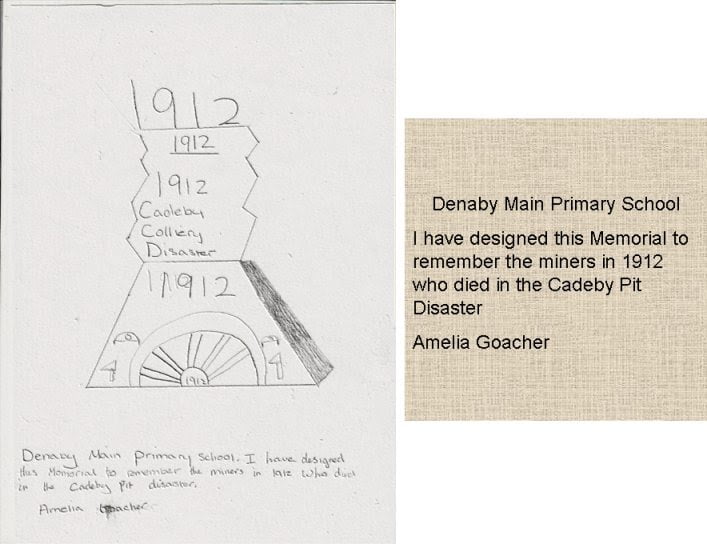 1912
1912
1912
Cadeby
Colliery
Disaster
1912
1912
Denaby Main Primary School. I have designed
this Memorial to remember the miners in 1912 who died
in the Cadeby Pit disaster.
Amelia Goacher.
Denaby Main Primary School
I have designed this Memorial to
remember the miners in 1912
who died in the Cadeby Pit
Disaster
Amelia Goacher